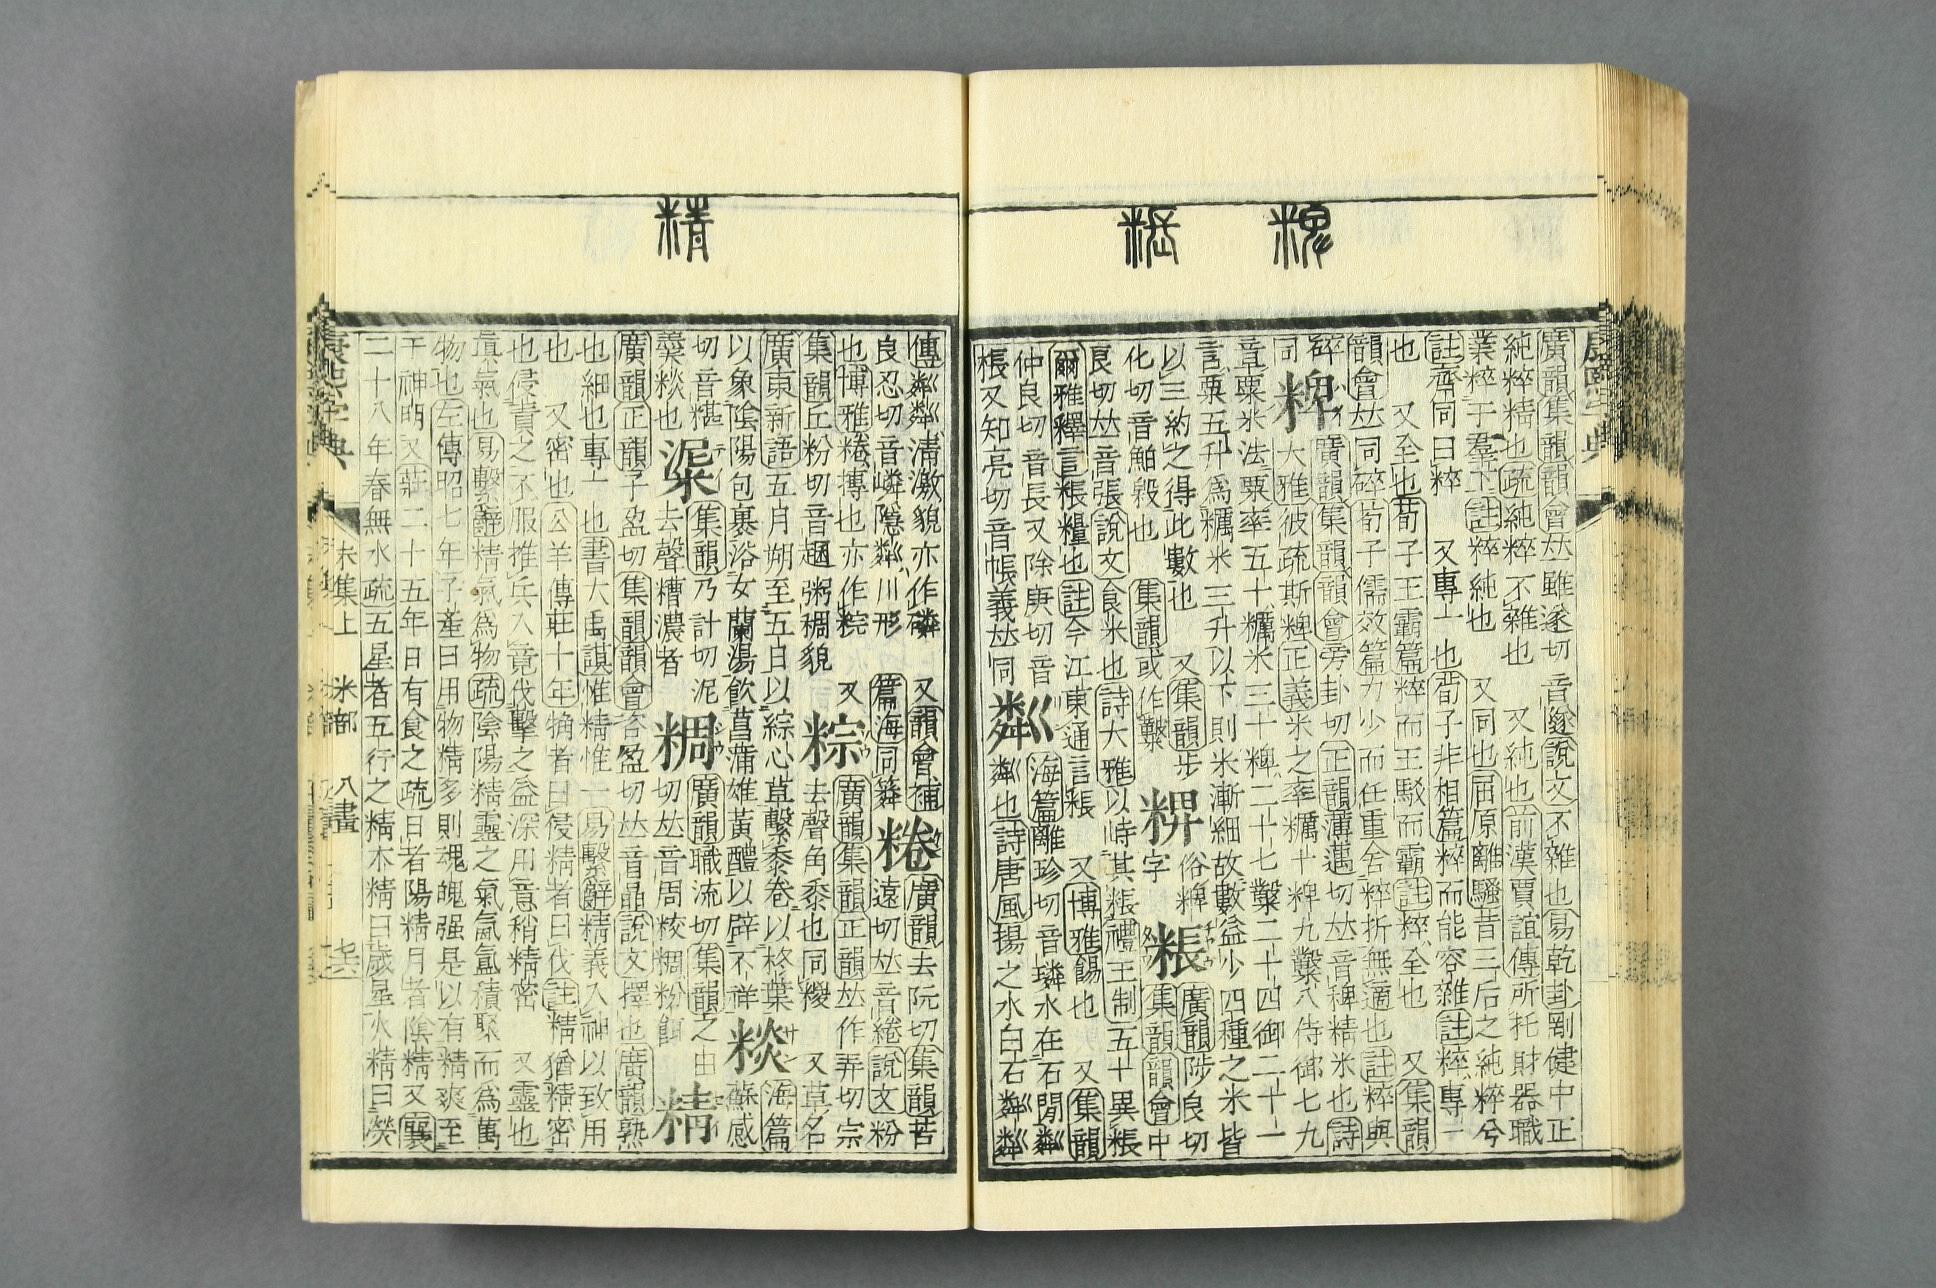 粺
粻
廣韻集韻韻會𠀤雖遂切音邃說文不雜也易乾卦剛健中正
純粹精也疏純粹不雜也 又純也前漢賈誼傳所托財器職
業粹于羣下註粹純也 又同也屈原離騷昔三后之純粹兮
註齊同曰粹 又專一也荀子非相篇粹而能容雜註粹專一
也 又至也荀子王霸篇粹而王駁而霸註粹全也 又集韻
韻會𠀤同碎荀子儒效篇力少而任重舍粹折無適也註粹與
碎
同
粺
廣韻集韻韻會旁卦切正韻薄邁切𠀤音稗精米也詩
大雅彼疏斯粺正義米之率糲十粺九糳八侍御七九
章粟米法粟率五十糲米三十粺二十七糳二十四御二十一
言粟五升爲糲米三升以下則米漸細故數益少四種之米皆
以三約之得此數也 又集韻步
化切音毇也 集韻或作糳
粺
俗粺
字
粻
廣韻陟良切
集韻韻會中
良切𠀤音張說文食米也詩大雅以峙其粻禮王制五十異粻
爾雅釋言粻糧也註今江東通言粻 又博雅餳也 又集韻
仲良切音長又除庚切音
棖又知亮切音帳義𠀤同
粼
海篇離珍切音璘水在石閒粼
粼也詩唐風揚之水白石粼粼
精
傳粼粼淸澈貌亦作磷 又韻會補
良忍切音嶙隱粼川形 篇海同粦
棬
廣韻去阮切集韻苦
遠切𠀤音綣說文粉
也博雅棬摶也亦作粽 又
集韻丘粉切音趣粥稠貌
粽
廣韻集韻正韻𠀤作弄切宗
去聲角黍也同糉 又草名
廣東新語五月朔至五日以綜心草繫黍卷以柊葉
以象陰陽包裹浴女蘭湯飮菖蒲雄黃醴以辟不祥
糝
海篇
蘇感
切音糂
羹糝也
淭
集韻乃計切泥
去聲糟濃者
粷
廣韻職流切集韻之由
切𠀤音周粀粷粉餌
精
廣韻正韻子盈切集韻韻會咨盈切𠀤音晶說文擇也廣韻熟
也細也專一也書大禹謨惟精惟一易繫辭精義入神以致用
也 又密也公羊傳莊十年觕者曰侵精者曰伐註精猶精密
也侵責之不服推兵入竟伐擊之益深用意稍精密 又靈也
眞氣也易繫辭精氣爲物疏陰陽精靈之氣氤氳積聚而爲萬
物也左傳昭七年子產曰用物精多則魂魄强是以有精爽至
于神明又莊二十五年日有食之疏日者陽精月者陰精又襄
二十八年春無水疏五星者五行之精木精曰歲星火精曰熒
康熙字典
未集上 米部 八畫
七六